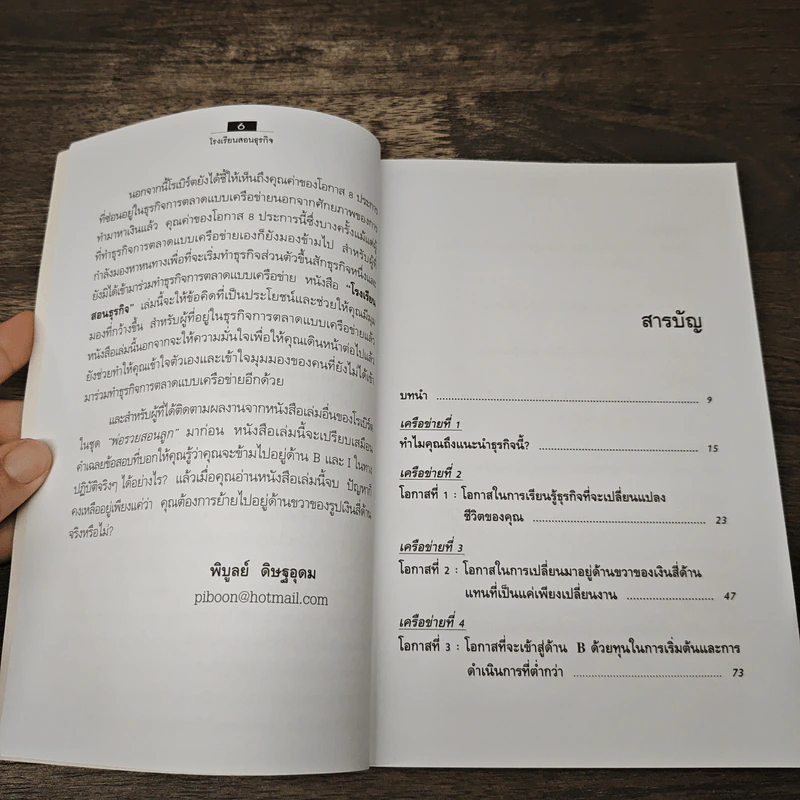 6
โรงเรียนสอนธุรกิจ
นอกจากนี้โรเบิร์ตยังได้ชี้ให้เห็นถึงคุณค่าของโอกาส 8 ประการ
ที่ซ่อนอยู่ในธุรกิจการตลาดแบบเครือข่ายนอกจากศักยภาพของการ
ทำมาหาเงินแล้ว คุณค่าของโอกาส 8 ประการนี้ซึ่งบางครั้งแม้แต่ผู้
ที่ทำธุรกิจการตลาดแบบเครือข่ายเองก็ยังมองข้ามไป สำหรับผู้ที่
กำลังมองหาหนทางเพื่อที่จะเริ่มทำธุรกิจส่วนตัวขึ้นสักธุรกิจหนึ่งและ
ยังมิได้เข้ามาร่วมทำธุรกิจการตลาดแบบเครือข่าย หนังสือ "โรงเรียน
สอนธุรกิจ" เล่มนี้จะให้ข้อคิดที่เป็นประโยชน์และช่วยให้คุณมีมุม
มองที่กว้างขึ้น สำหรับผู้ที่อยู่ในธุรกิจการตลาดแบบเครือข่ายแล้ว
หนังสือเล่มนี้นอกจากจะให้ความมั่นใจเพื่อให้คุณเดินหน้าต่อไปแล้ว
ยังช่วยทำให้คุณเข้าใจตัวเองและเข้าใจมุมมองของคนที่ยังไม่ได้เข้า
มาร่วมทำธุรกิจการตลาดแบบเครือข่ายอีกด้วย
และสำหรับผู้ที่ได้ติดตามผลงานจากหนังสือเล่มอื่นของโรเบิร์ต
ในชุด "พ่อรวยสอนลูก" มาก่อน หนังสือเล่มนี้จะเปรียบเสมือน
คำเฉลยข้อสอบที่บอกให้คุณรู้ว่าคุณจะข้ามไปอยู่ด้าน B และ I ในทาง
ปฏิบัติจริงๆ ได้อย่างไร? แล้วเมื่อคุณอ่านหนังสือเล่มนี้จบ ปัญหาก็
คงเหลืออยู่เพียงแค่ว่า คุณต้องการย้ายไปอยู่ด้านขวาของรูปเงินสี่ด้าน
จริงหรือไม่?
พิบูลย์ ดิษฐอุดม
piboon@hotmail.com
สารบัญ
บทนำ 9
เครือข่ายที่ 1
ทำไมคุณถึงแนะนำธุรกิจนี้? 15
เครือข่ายที่ 2
โอกาสที่ 1 : โอกาสในการเรียนรู้ธุรกิจที่จะเปลี่ยนแปลง
ชีวิตของคุณ 23
เครือข่ายที่ 3
โอกาสที่ 2 : โอกาสในการเปลี่ยนมาอยู่ด้านขวาของเงินสี่ด้าน
แทนที่เป็นแค่เพียงเปลี่ยนงาน 47
เครือข่ายที่ 4
โอกาสที่ 3 : โอกาสที่จะเข้าสู่ด้าน B ด้วยทุนในการเริ่มต้นและการ
ดำเนินการที่ต่ำกว่า 73